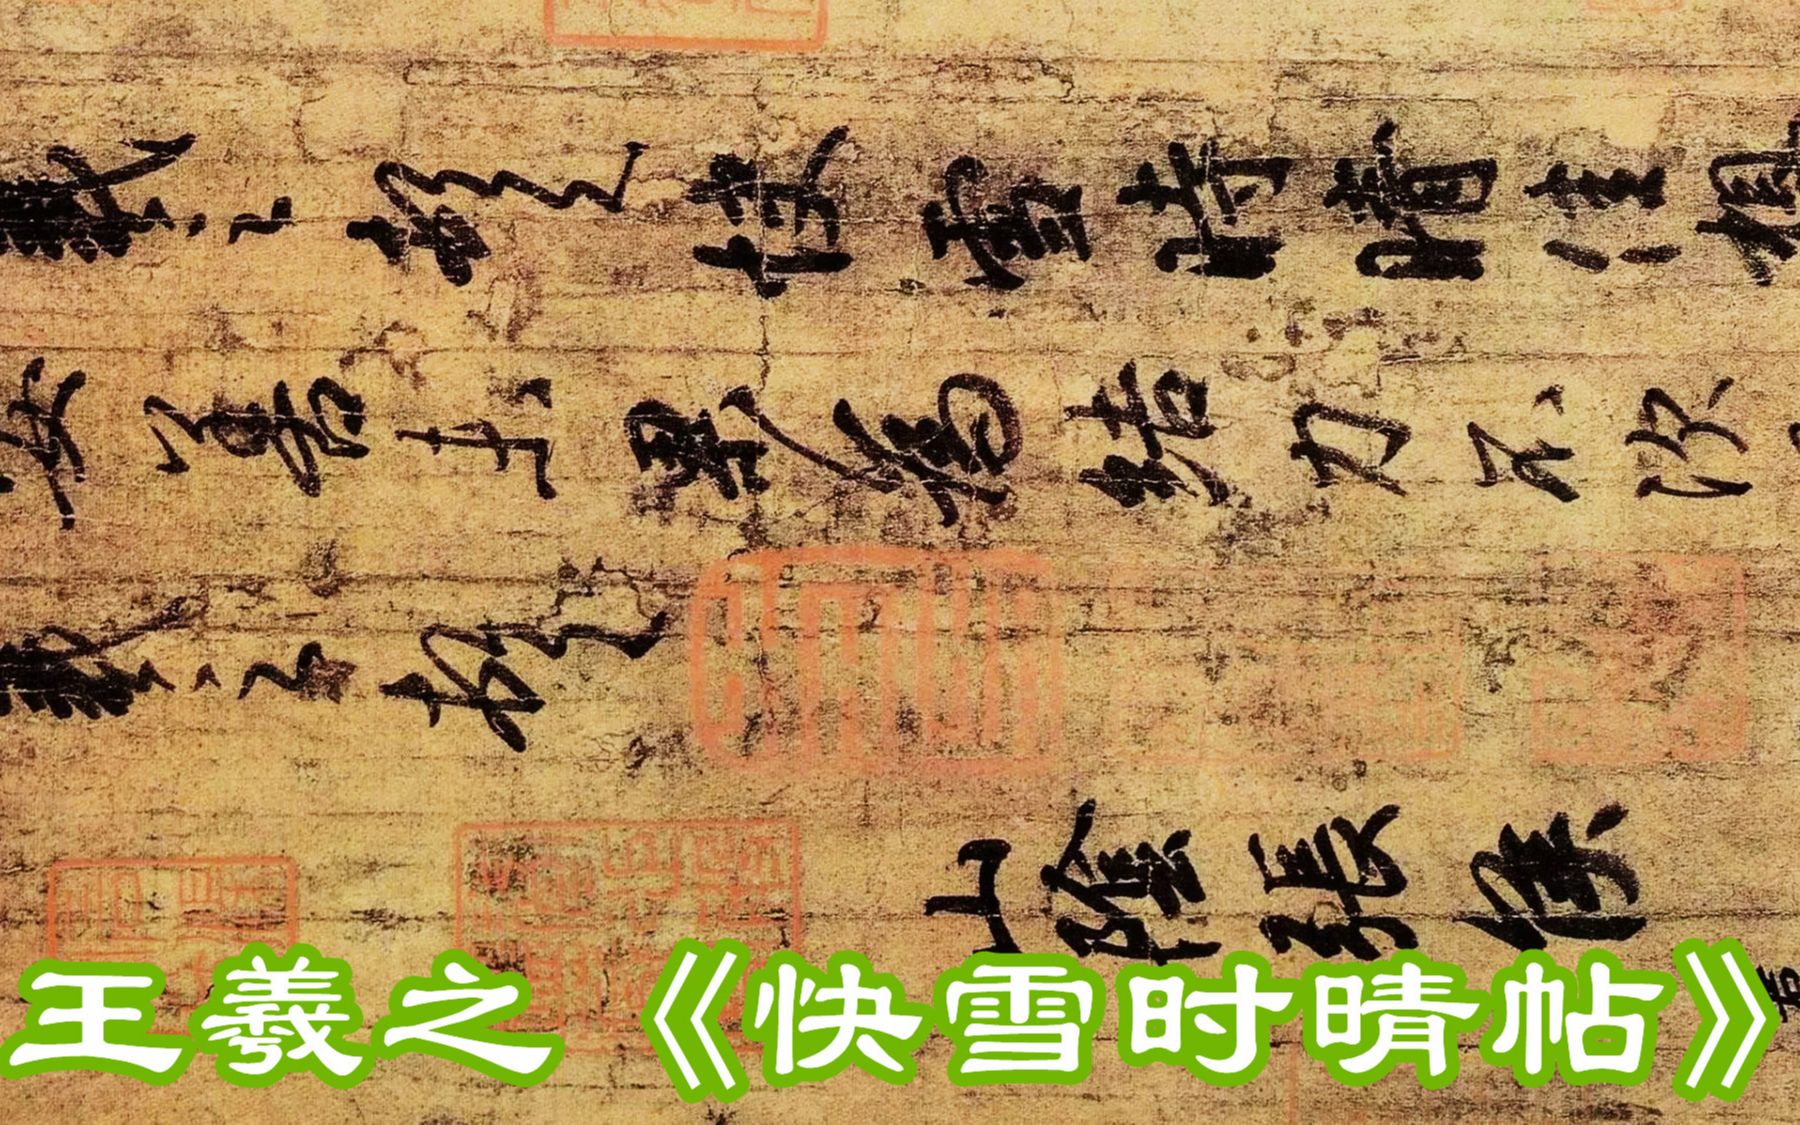 羲之頓首快雪時晴佳想
安善未果為結力不次
羲之頓首
山陰張侯
王羲之《快雪时晴帖》